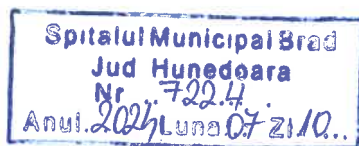 Spitalul Municipal Brad
Jud Hunedoara
Nr. 7224.
Anul. 2024 Luna 07 Zi 10..